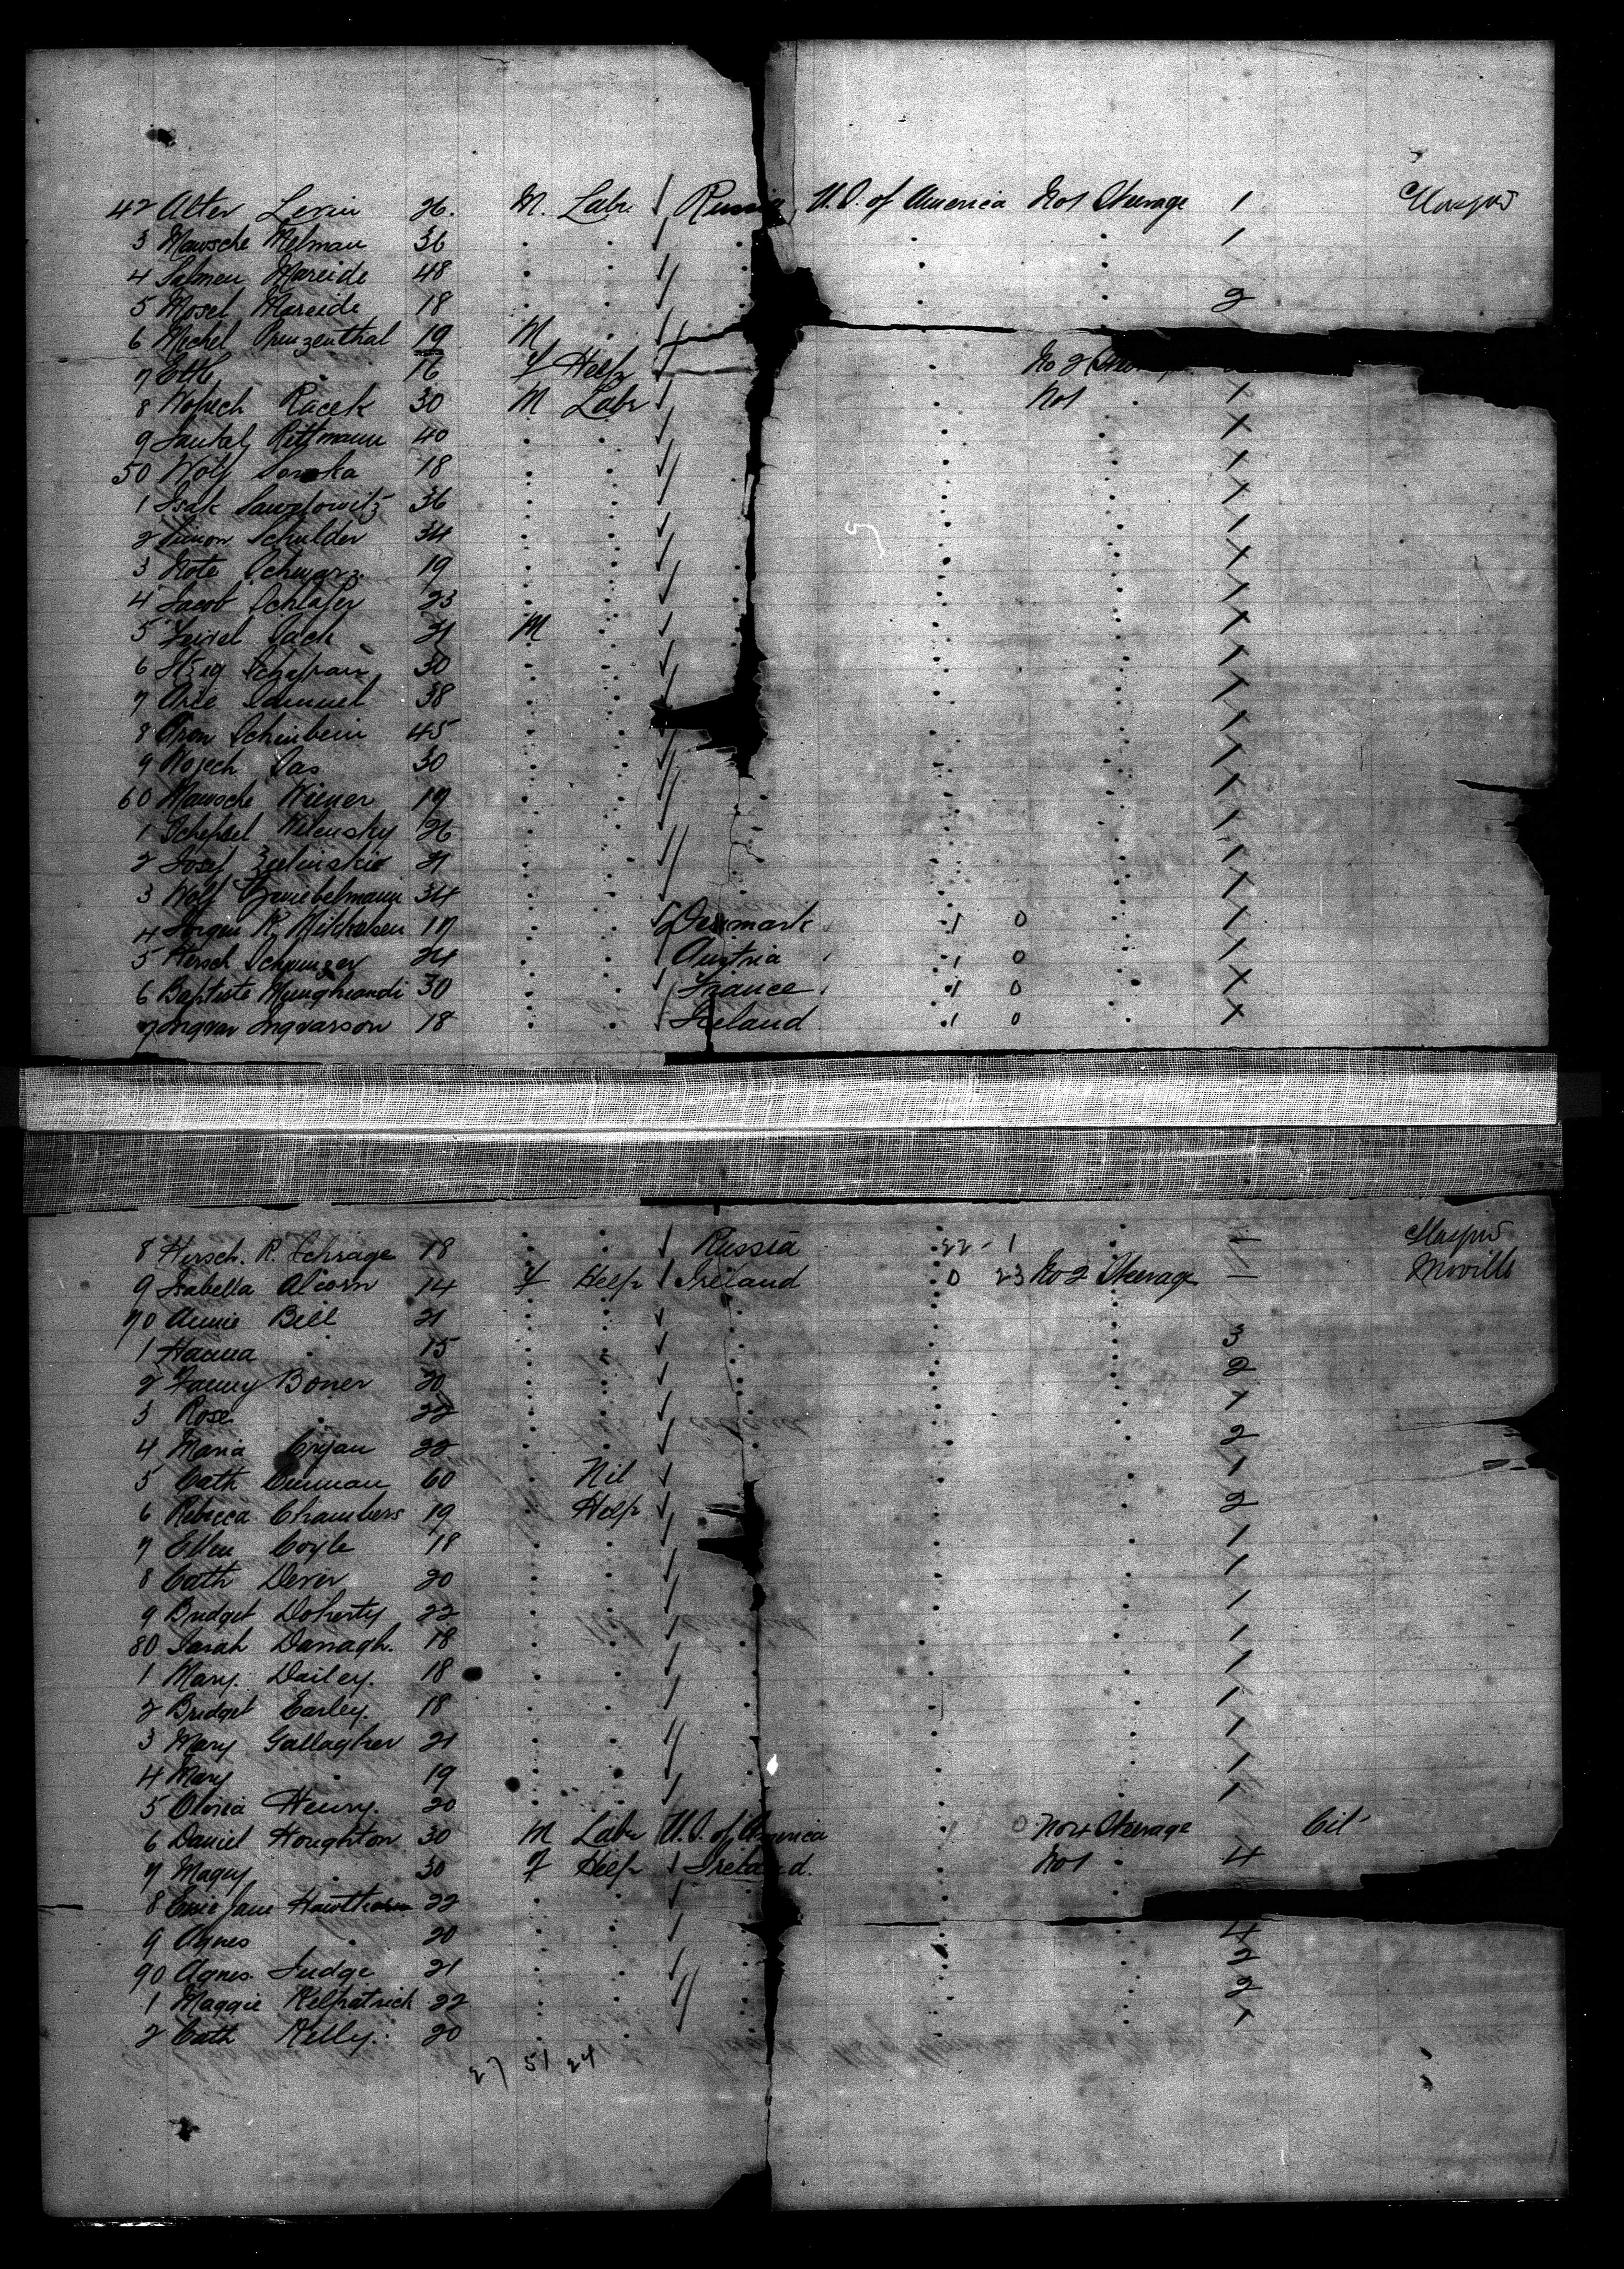 42 Alter Levin 26. M. Labr Russia U.S. of America No1 Steerage 1 Glasgow
3 Mawsche Melman 36 . . . . . 1
4 Salmen Mareide 48 . . . . .
5 Mosel Mareide 18 . . . . . 2
6 Mechel 19 M .
7 Ette . 16 f Help . No 2
8 Racek 30 M Labr . No1 . 1
9 Rittmann 40 . . . . 1
50 Wolf 18 . . . . 1
1 Isak 36 . . . . 1
2 Simon Schulder 34 . . . . 1
3 Note Schwarz 19 . . . . 1
4 Jacob Schlafer 23 . . . . 1
5 Sack 21 M . . . 1
6 30 . . . . 1
7 Arie Samuel 38 . . . . 1
8 Aron Scheinbein 45 . . . . 1
9 Wojech Sas 30 . . . . 1
60 Mawsche Wiener 19 . . . . 1
1 Schepsel Wilensky 26 . . . . 1
2 Josef 21 . . . . 1
3 Wolf 34 . . . . 1
4 Jorgen R. Mitchelsen 17 . . Denmark 1 0 . 1
5 Hersch 24 . . Austria 1 0 . 1
6 Baptiste 30 . . France 1 0 . 1
7 Ingvar Ingvarson 18 . . Iceland 1 0 . 1
8 Hersch. R. Schrage 18 . . Russia 22 - 1 . 1 Glasgow
9 Isabella Alcorn 14 f Help Ireland 0 23 No 2 Steerage 1 Moville
70 Annie Bell 21 . . . . .
1 Hanna . 15 . . . . . 3
2 Fanny Boner 20 . . . . . 2
3 Rose . 22 . . . . . 1
4 Maria Cryan 22 . . . . . 2
5 Cath 60 . Nil . . . 1
6 Rebecca Chambers 19 . Help . . 2
7 Ellen Coyle 18 . . . . 1
8 Cath Dever 20 . . . . 1
9 Bridget Doherty 22 . . . . 1
80 Sarah Darragh. 18 . . . . . 1
1 Mary. Dailey. 18 . . . . . 1
2 Bridget Earley. 18 . . . . . 1
3 Mary Gallagher 21 . . . . . 1
4 Mary . 19 . . . . . 1
5 Henry. 20 . . . . . 1
6 Daniel Houghton 30 M Labr U.S. of America . 0 No4 Steerage Cit
7 . 30 f Help Ireland. . No1 . 4
8 Jane Hawthorn 22 . . . . .
9 Agnes . 20 . . . . . 4
90 Agnes. Judge 21 . . . . . 2
1 Maggie Kilpatrick 22 . . . . . 2
2 Cath Kelly. 20 . . . . . 1
27 51 24